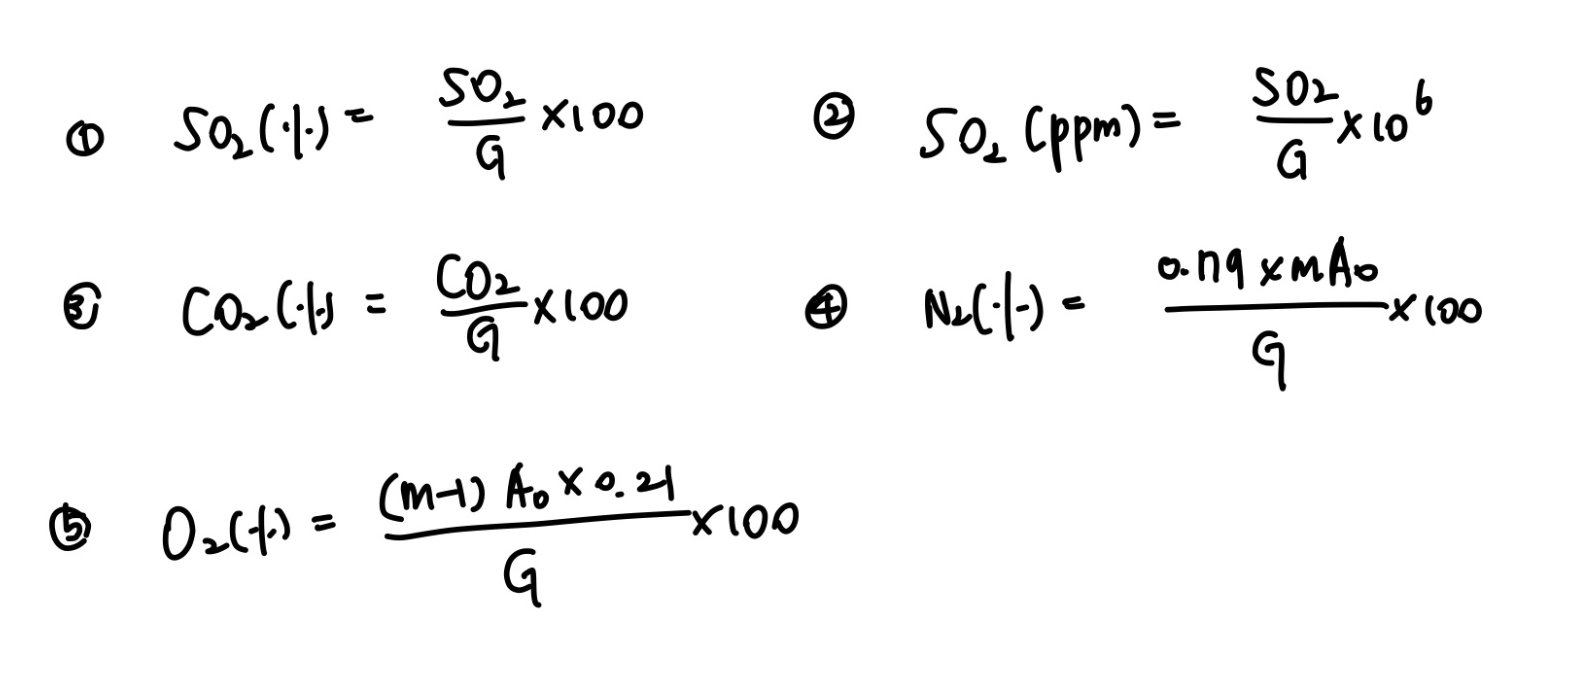 ① SO₂(%) = SO₂/G ×100 ② SO₂ (ppm) = SO₂/G ×10⁶
③ CO₂(%) = CO₂/G ×100 ④ N₂(%) = 0.79×mA₀/G ×100
⑤ O₂(%) = (m-1) A₀×0.21/G ×100